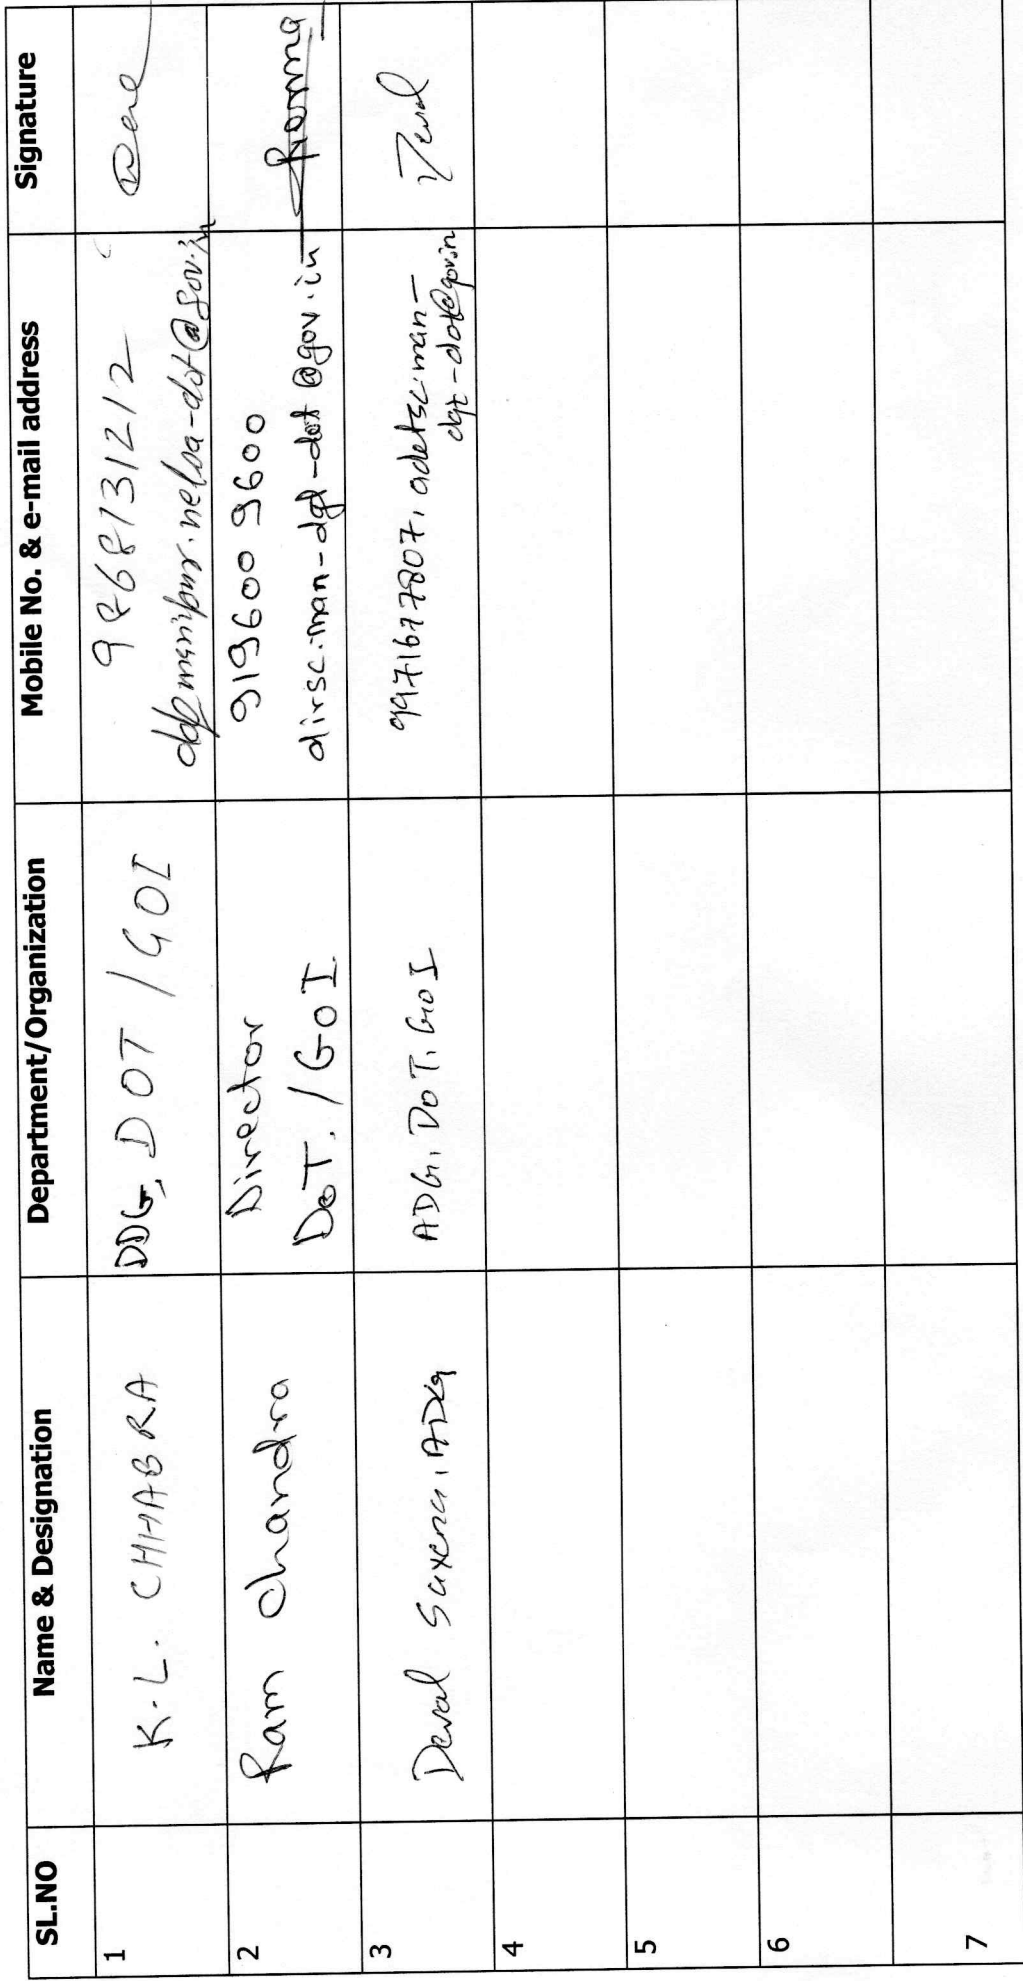 SL.NO Name & Designation Department/Organization Mobile No. & e-mail address Signature
1 K.L. CHHABRA DDG, DOT / GOI 9868131212
2 Ram Chandra Director 919600 9600
DoT. / GOI dirsc.man-dgt-dot@gov.in
3 Deval Saxena, ADG ADG, DoT, GoI 9971677807, adetsc.man-
dgt-dot@gov.in Deval
4
5
6
7